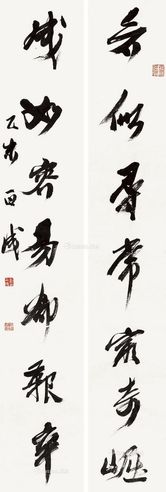 看似尋常最奇崛
成如容易卻艱辛
乙未